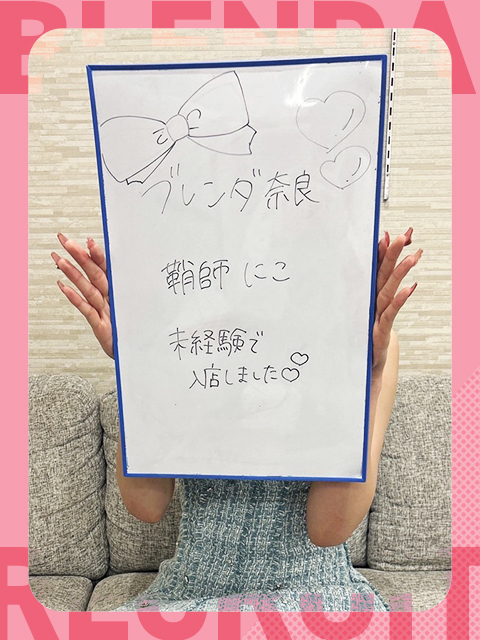 BLENDA
ブレンダ奈良
鞘師 にこ
未経験で
入店しました♡♡
RECRUIT